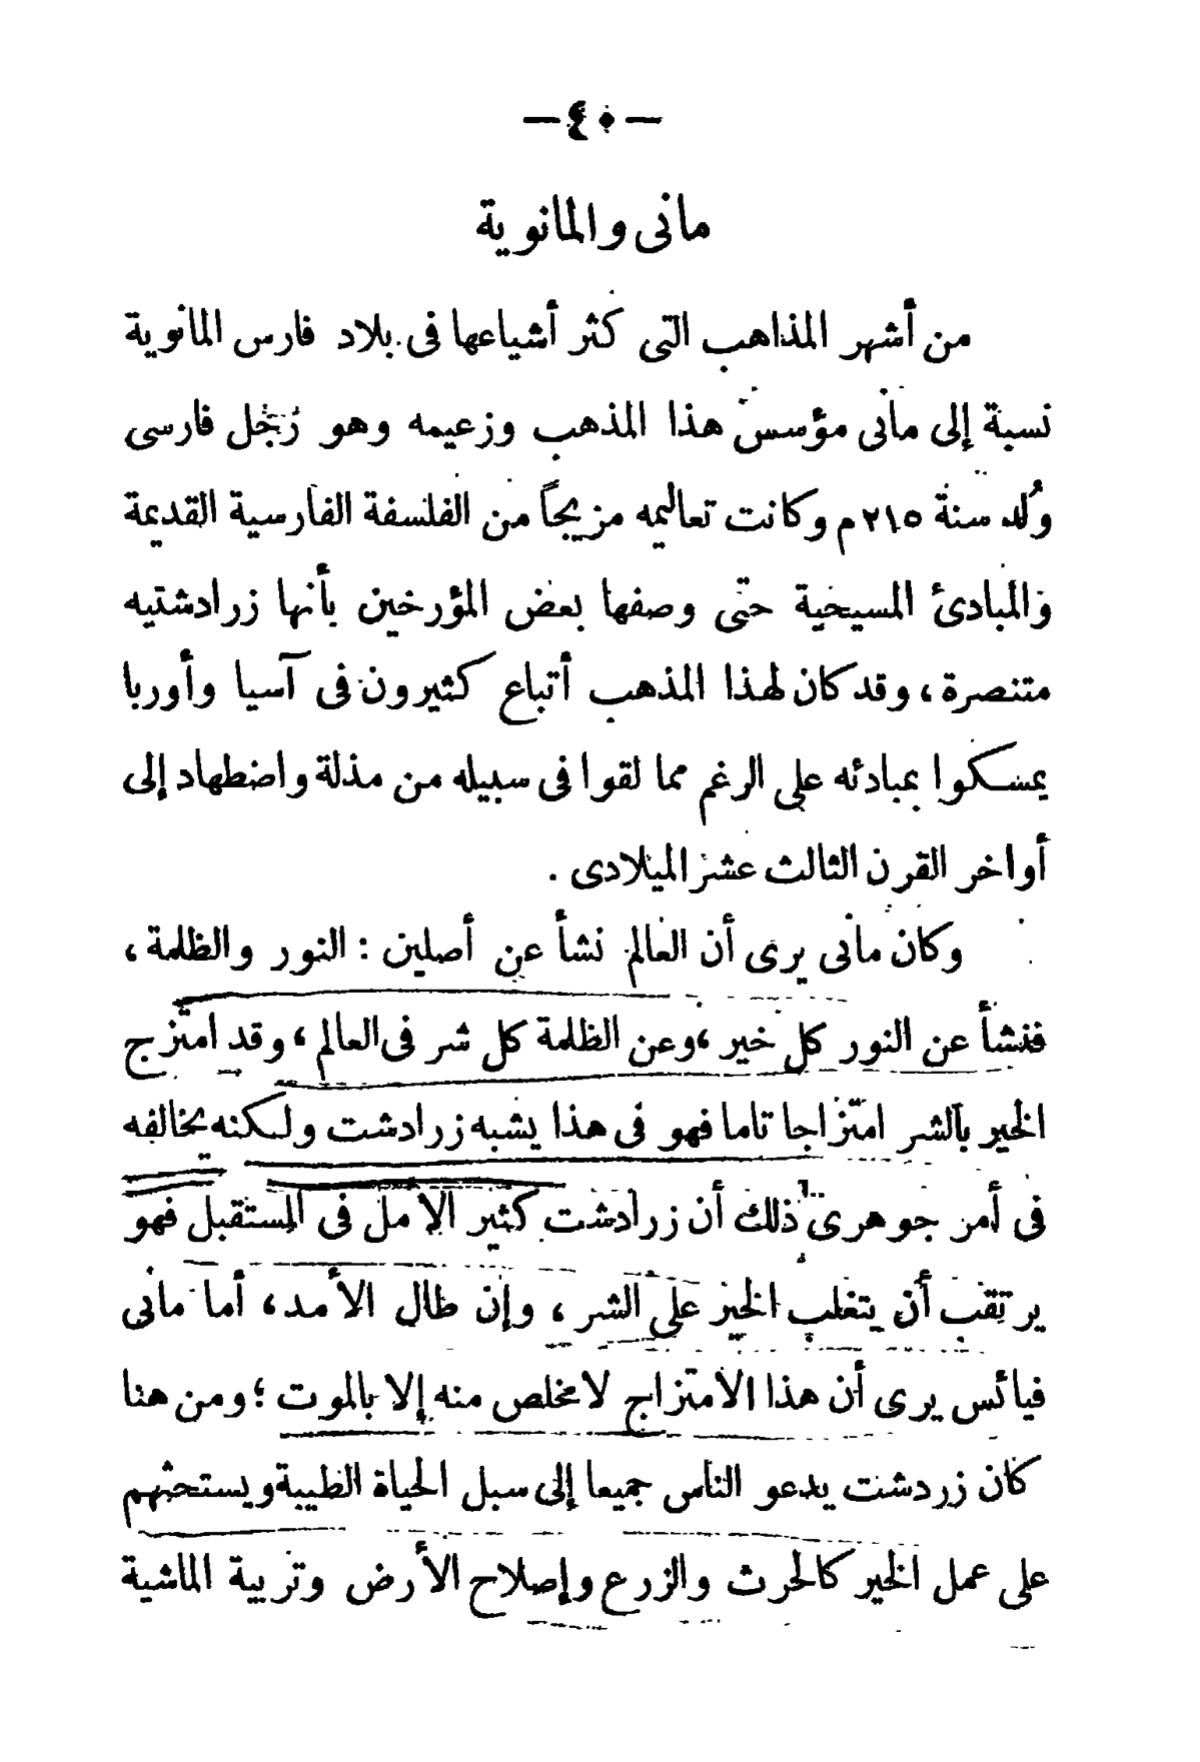 — ٤٠ —
مانى والمانوية
من أشهر المذاهب التى كثر أشياعها فى بلاد فارس المانوية
نسبة إلى مانى مؤسس هذا المذهب وزعيمه وهو رجل فارسى
وُلد سنة ٢١٥ م وكانت تعاليمه مزيجاً من الفلسفة الفارسية القديمة
والمبادئ المسيحية حتى وصفها بعض المؤرخين بأنها زرادشتيه
متنصرة ، وقد كان لهذا المذهب أتباع كثيرون فى آسيا وأوربا
يمسكوا بمبادئه على الرغم مما لقوا فى سبيله من مذلة واضطهاد إلى
أواخر القرن الثالث عشر الميلادى .
وكان مانى يرى أن العالم نشأ عن أصلين : النور والظلمة ،
فنشأ عن النور كل خير ، وعن الظلمة كل شر فى العالم ، وقد امتزج
الخير بالشر امتزاجا تاما فهو فى هذا يشبه زرادشت ولكنه يخالفه
فى أمر جوهرى ذلك أن زرادشت كثير الأمل فى المستقبل فهو
يرتقب أن يتغلب الخير على الشر ، وإن طال الأمد ، أما مانى
فيائس يرى أن هذا الامتزاج لا مخلص منه إلا بالموت ؛ ومن هنا
كان زردشت يدعو الناس جميعا إلى سبل الحياة الطيبة ويستحثهم
على عمل الخير كالحرث والزرع وإصلاح الأرض وتربية الماشية